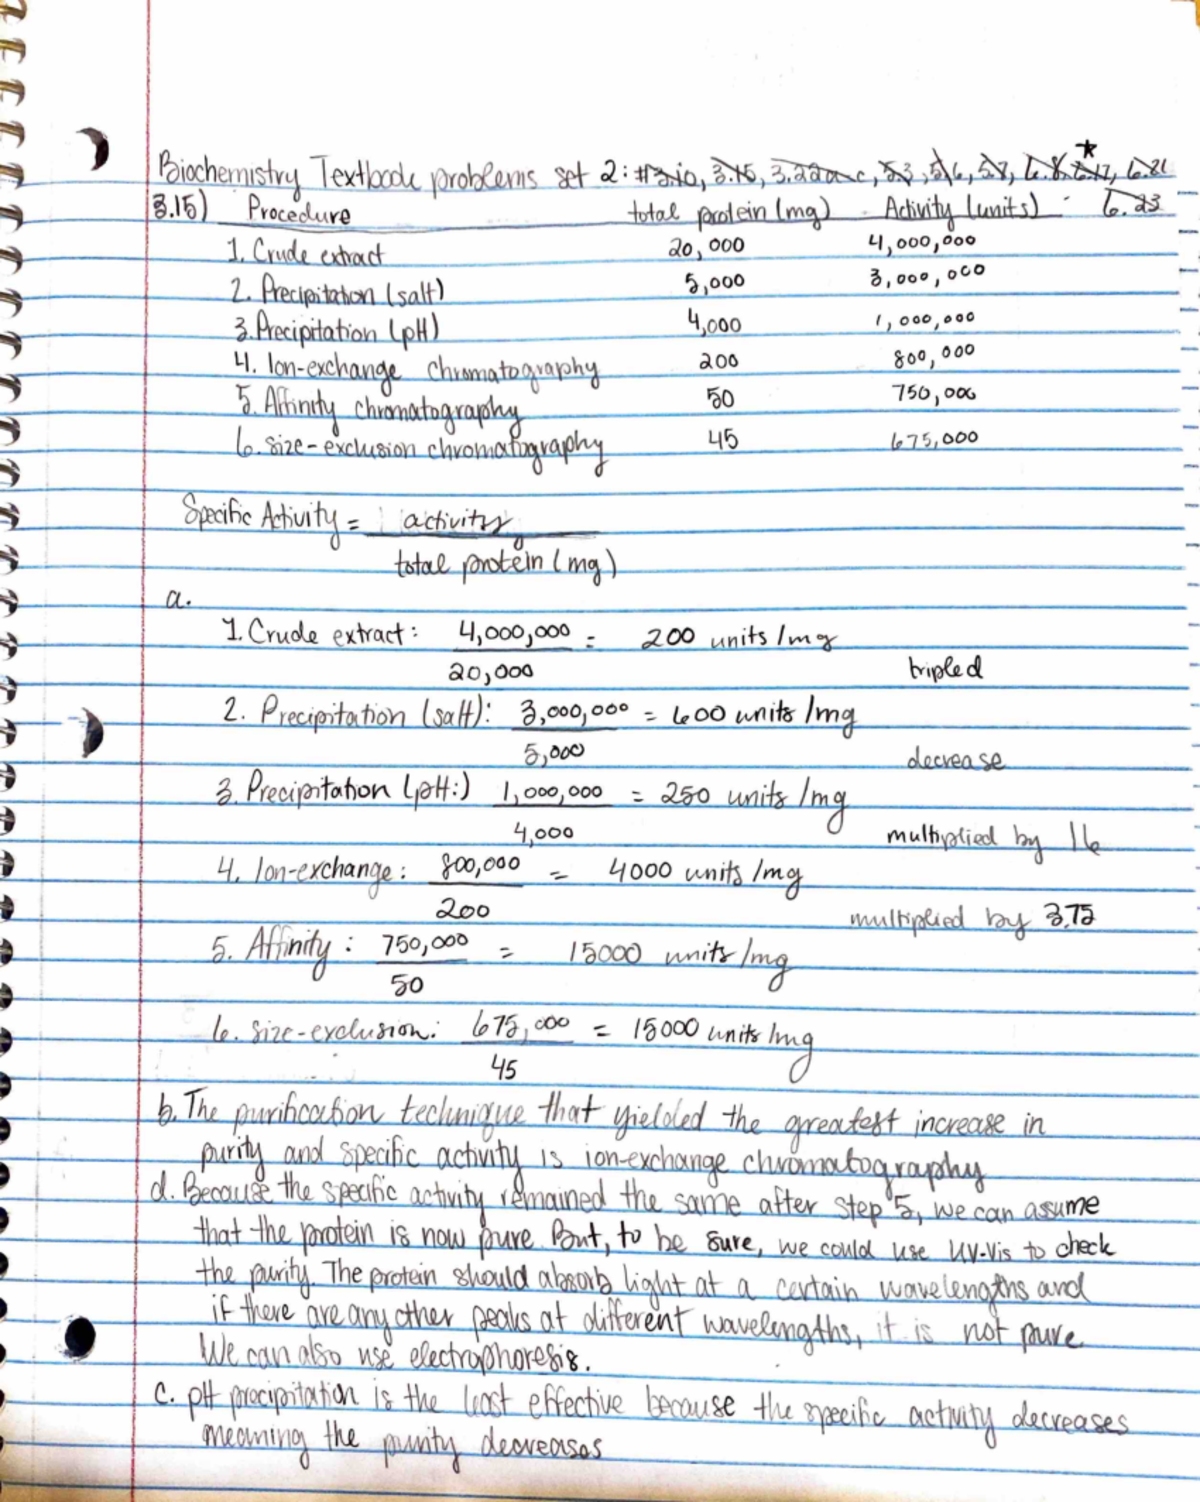 Biochemistry Textbook problems set 2: #3.10, 3.15, 3.22a-c, 5.3, 5.6, 5.7, 6.8, 6.17, 6.21
3.15) Procedure total protein (mg) Activity (units) 6.23
1. Crude extract 20,000 4,000,000
2. Precipitation (salt) 5,000 3,000,000
3. Precipitation (pH) 4,000 1,000,000
4. Ion-exchange chromatography 200 800,000
5. Affinity chromatography 50 750,000
6. size-exclusion chromatography 45 675,000
Specific Activity = activity
total protein (mg)
a.
1. Crude extract: 4,000,000 = 200 units/mg
20,000
tripled
2. Precipitation (salt): 3,000,000 = 600 units/mg
5,000
decrease
3. Precipitation (pH:) 1,000,000 = 250 units/mg
4,000
multiplied by 16
4. Ion-exchange: 800,000 = 4000 units/mg
200
multiplied by 3.75
5. Affinity: 750,000 = 15000 units/mg
50
6. size-exclusion: 675,000 = 15000 units/mg
45
b. The purification technique that yielded the greatest increase in
purity and specific activity is ion-exchange chromatography
d. Because the specific activity remained the same after step 5, we can assume
that the protein is now pure. But, to be sure, we could use UV-Vis to check
the purity. The protein should absorb light at a certain wavelengths and
if there are any other peaks at different wavelengths, it is not pure.
We can also use electrophoresis.
c. pH precipitation is the least effective because the specific activity decreases
meaning the purity decreases